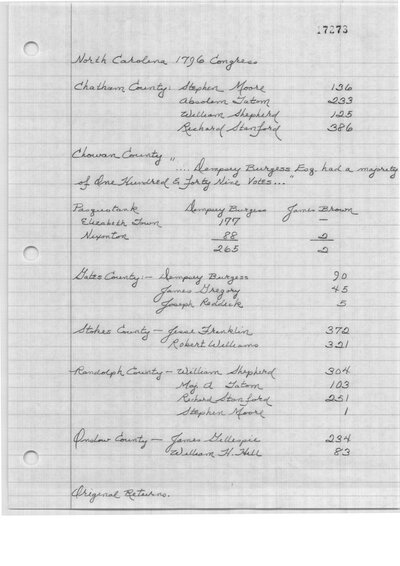 17273
North Carolina 1796 Congress
Chatham County: Stephen Moore 136
Absolem Tatom 233
William Shepherd 125
Richard Stanford 386
Chowan County
"... Dempsey Burgess Esq. had a majority
of One Hundred & Forty Nine Votes..."
Pasquotank Dempsey Burgess James Brown
Elizabeth Town 177 —
Nixonton 88 2
265 2
Gates County:- Dempsey Burgess 90
James Gregory 45
Joseph Reddick 5
Stokes County - Jesse Franklin 372
Robert Williams 321
Randolph County - William Shepherd 304
Maj. A Tatom 103
Richard Stanford 251
Stephen Moore 1
Onslow County - James Gillespie 234
William H. Hill 83
Original Returns.